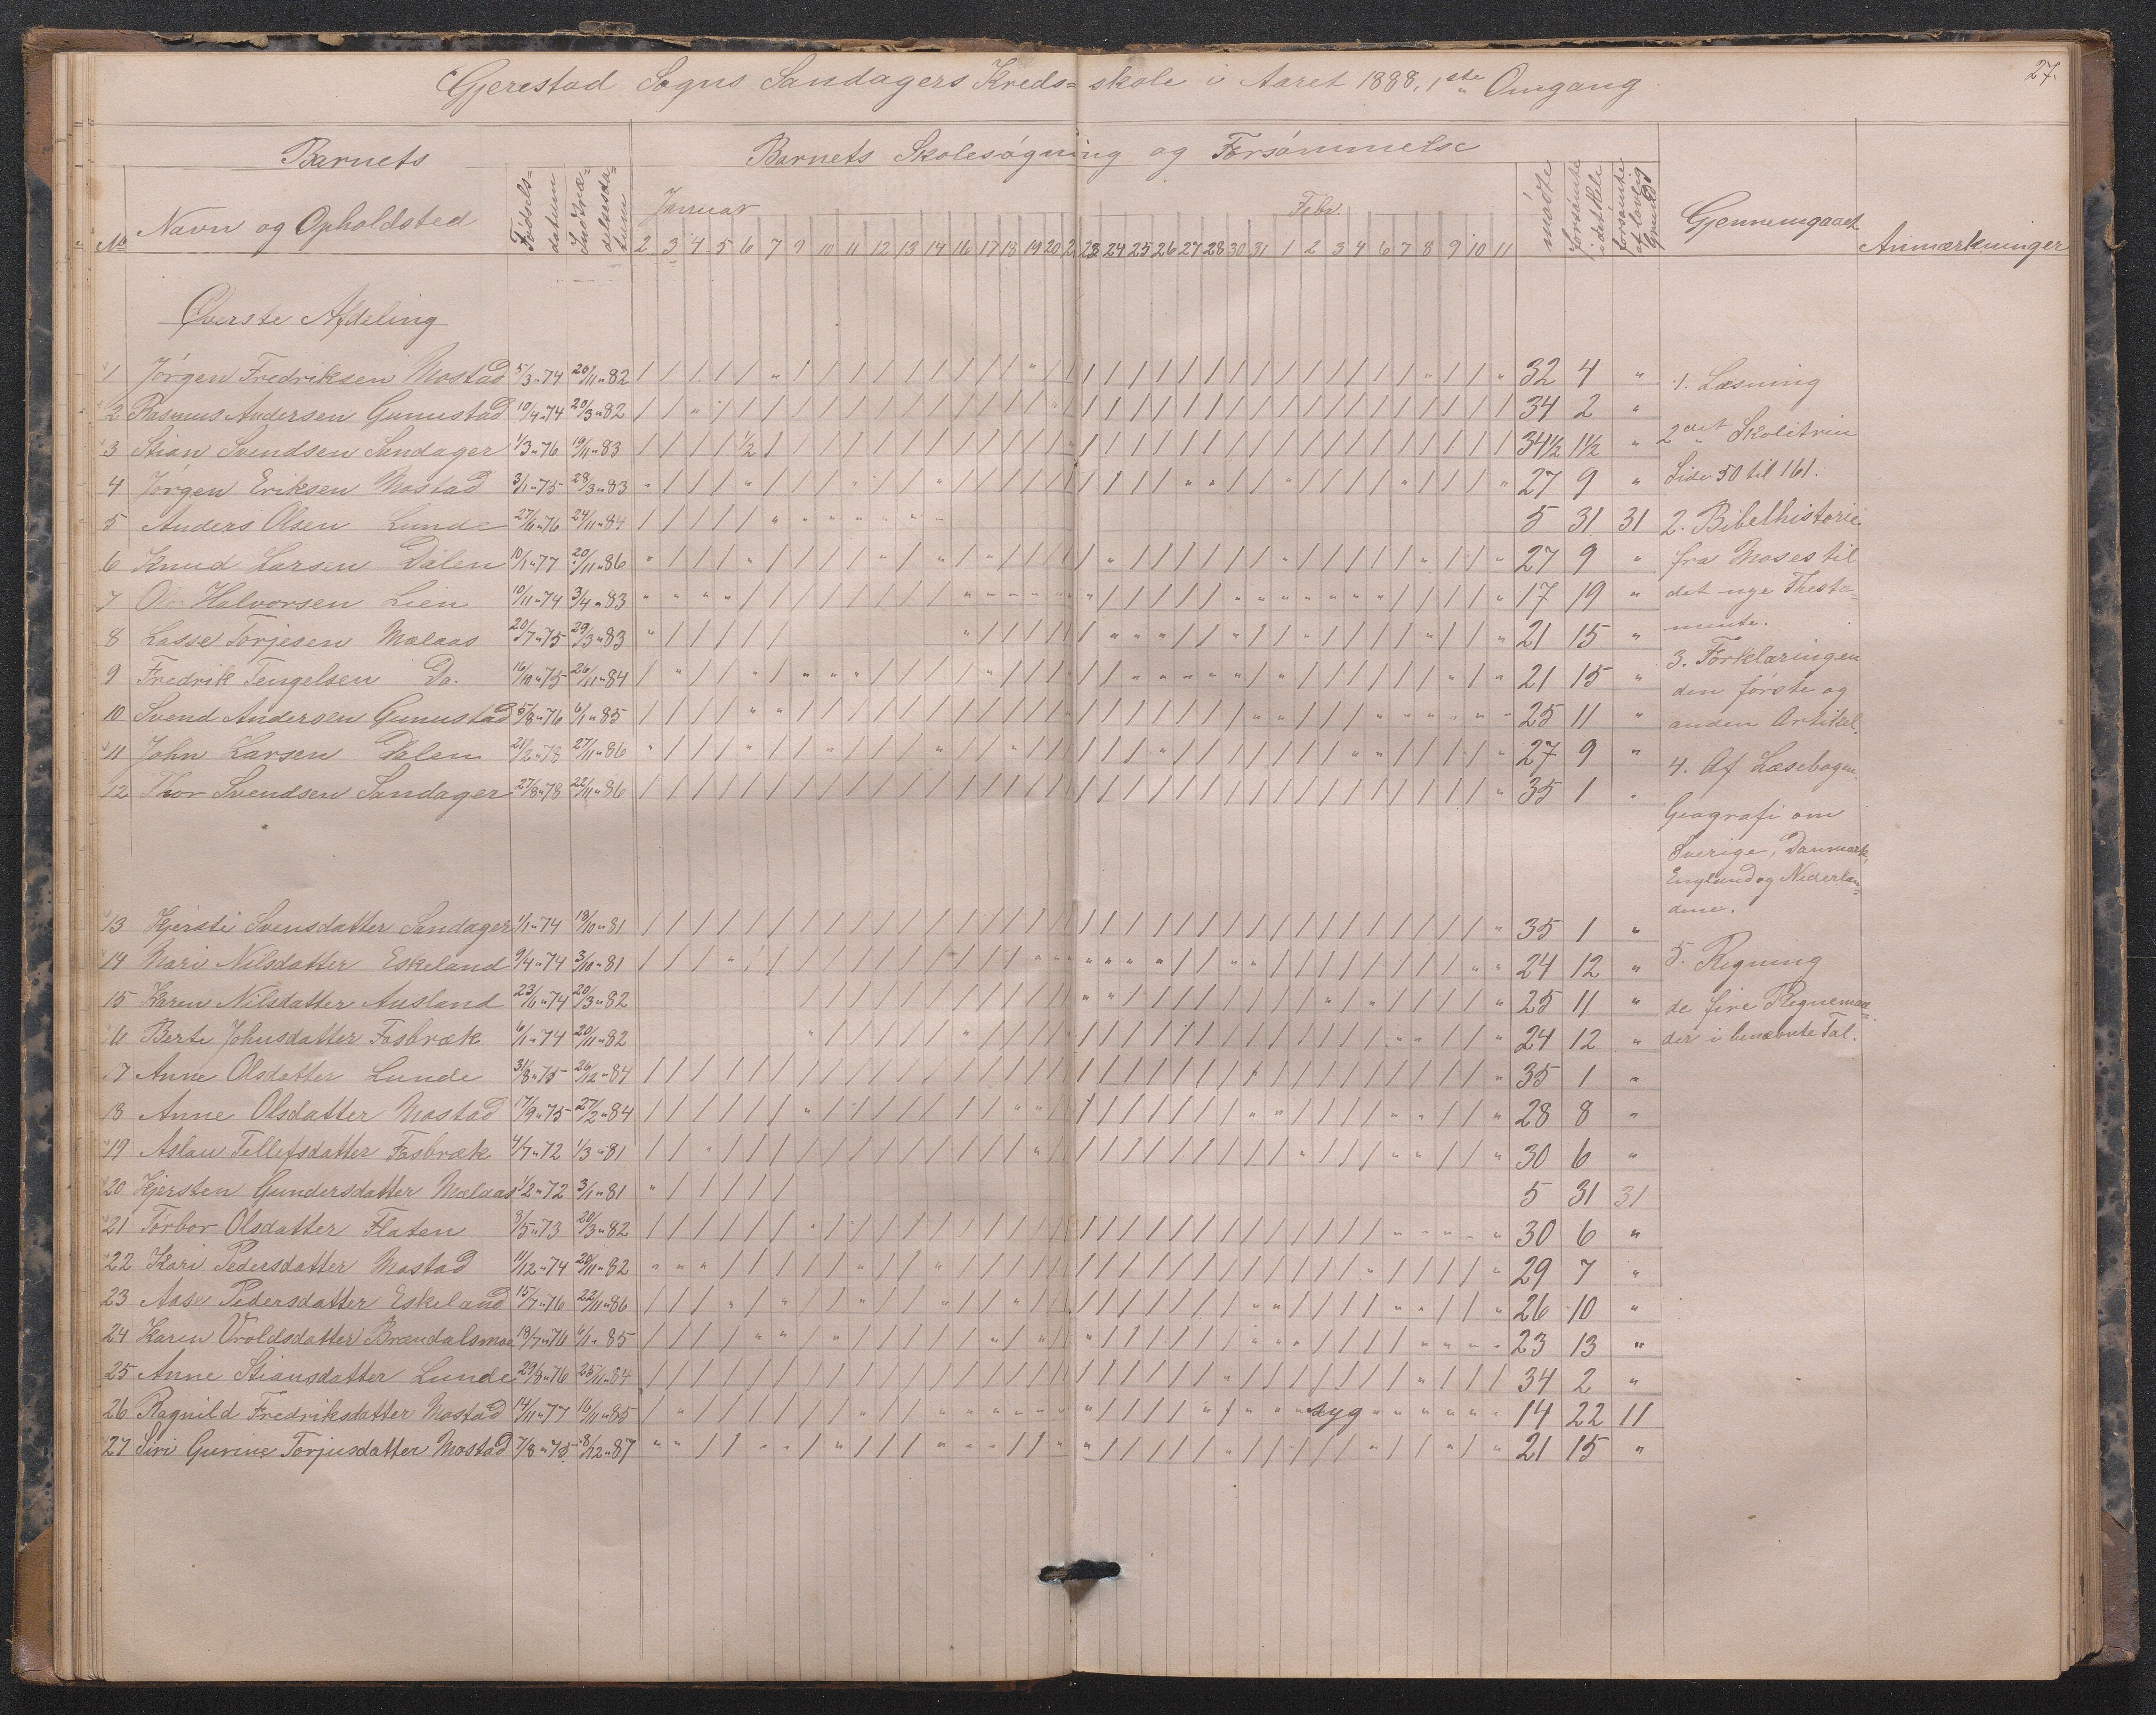 27.
Gjerestad Sogns Sandagers Kreds=skole i Aaret 1888, 1ste Omgang.
Barnets
Barnets Skolesøgning og Forsømmelse
No
Navn og Opholdsted
Fødsels=datum
Indtræ=delsesda=tum
Januar
Febr.
mødte
forsømte i det Hele
forsømte af lovlig Grund
Gjennemgaaet
Anmærkninger
2 3 4 5 6 7 9 10 11 12 13 14 16 17 18 19 20 21 23 24 25 26 27 28 30 31 1 2 3 4 6 7 8 9 10 11
Øverste Afdeling
1 Jørgen Fredriksen Mostad 5/3 „ 74 20/11 „ 82 32 4 „
2 Rasmus Andersen Gunustad 10/4 „ 74 20/3 „ 82 34 2 „
3 Stian Svendsen Sandager 1/3 „ 76 19/11 „ 83 1/2 34½ 1½ „
4 Jørgen Eriksen Mostad 3/1 „ 75 28/3 „ 83 27 9 „
5 Anders Olsen Lunde 27/6 „ 76 24/11 „ 84 5 31 31
6 Knud Larsen Dalen 10/1 „ 77 20/11 „ 86 27 9 „
7 Ole Halvorsen Lien 10/11 „ 74 3/4 „ 83 17 19 „
8 Lasse Torjesen Mælaas 20/7 „ 75 29/3 „ 83 21 15 „
9 Fredrik Tengelsen Do. 16/10 „ 75 26/11 „ 84 21 15 „
10 Svend Andersen Gunustad 5/8 „ 76 6/1 „ 85 25 11 „
11 John Larsen Dalen 21/2 „ 78 27/11 „ 86 27 9 „
12 Thor Svendsen Sandager 27/8 „ 78 22/11 „ 86 35 1 „
13 Kjersti Svensdatter Sandager 1/1 „ 74 18/10 „ 81 35 1 „
14 Mari Nilsdatter Eskeland 9/4 „ 74 3/10 „ 81 24 12 „
15 Karen Nilsdatter Ausland 23/6 „ 74 20/3 „ 82 25 11 „
16 Berte Johnsdatter Fosbræk 6/1 „ 74 20/11 „ 82 24 12 „
17 Anne Olsdatter Lunde 31/8 „ 75 26/12 „ 84 35 1 „
18 Anne Olsdatter Mostad 17/9 „ 75 27/2 „ 84 28 8 „
19 Aslau Tellefsdatter Fosbræk 4/7 „ 72 1/3 „ 81 30 6 „
20 Kjersten Gundersdatter Mælaas 1/2 „ 72 3/1 „ 81 5 31 31
21 Torbor Olsdatter Flaten 3/5 „ 73 20/3 „ 82 30 6 „
22 Kari Pedersdatter Mostad 11/12 „ 74 20/11 „ 82 29 7 „
23 Aase Pedersdatter Eskeland 15/7 „ 76 22/11 „ 86 26 10 „
24 Karen Vroldsdatter Brændalsmoe 18/7 „ 76 6/1 „ 85 23 13 „
25 Anne Stiansdatter Lunde 29/8 „ 76 25/11 „ 84 34 2 „
26 Ragnild Fredriksdatter Mostad 14/11 „ 77 16/11 „ 85 syg 14 22 11
27 Siri Gurine Torjusdatter Mostad 7/8 „ 75 8/12 „ 87 21 15 „
1. Læsning
2det Skoletrin
Side 50 til 161.
2. Bibelhistorie
fra Moses til
det nye Thesta=
mente.
3. Forklaringen
den første og
anden Artikel.
4. Af Læsebogen.
Geografi om
Sverige, Danmark,
England og Nederlan=
dene.
5. Regning
de fire Regnemaa=
der i benævnte Tal.